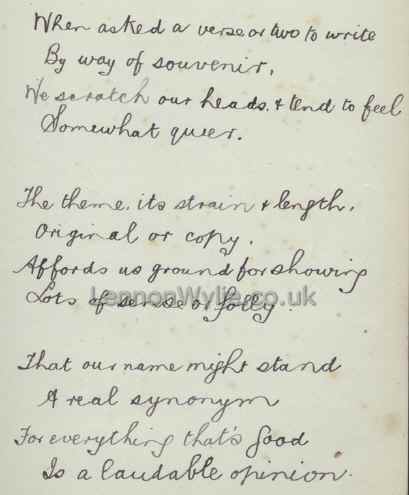 When asked a verse or two to write
By way of souvenir,
We scratch our heads, & tend to feel
Somewhat queer.
The theme, its strain & length,
Original or copy,
Affords us ground for showing
Lots of sense or folly.
LennonWylie.co.uk
That our name might stand
A real synonym
For everything that's good
Is a laudable opinion.